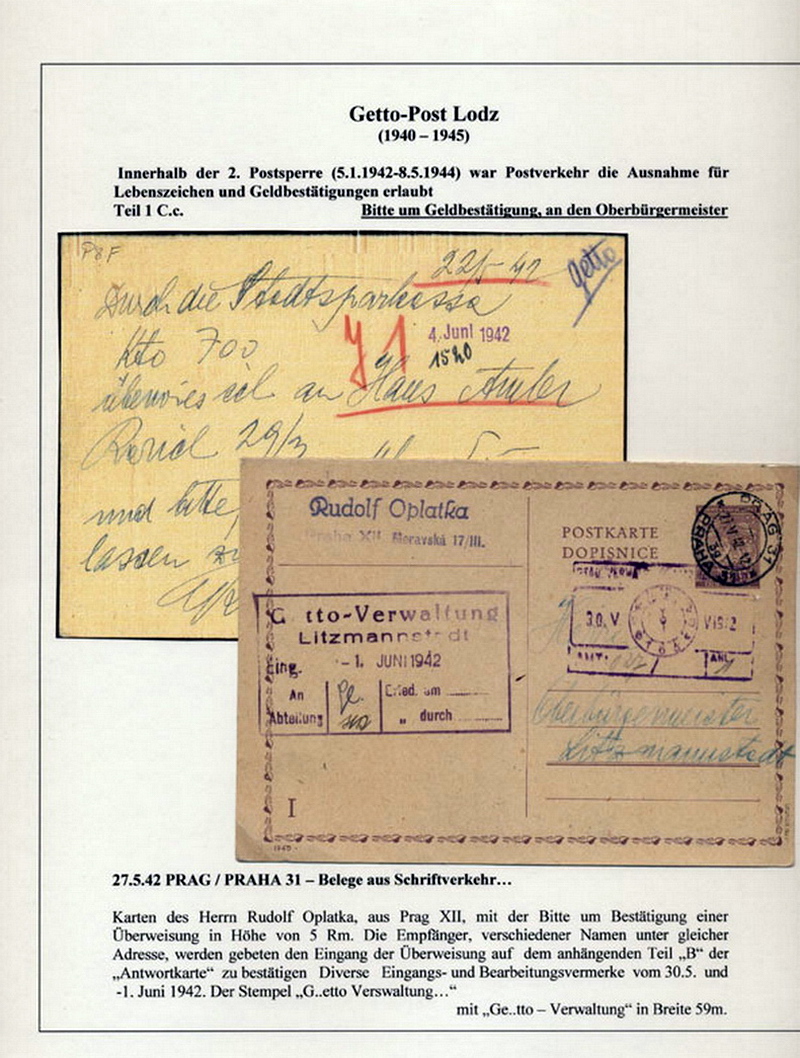 Getto-Post Lodz
(1940 – 1945)
Innerhalb der 2. Postsperre (5.1.1942-8.5.1944) war Postverkehr die Ausnahme für
Lebenszeichen und Geldbestätigungen erlaubt
Teil 1 C.c. Bitte um Geldbestätigung, an den Oberbürgermeister
P8F
22/5 42
Getto
Durch die Stadtsparkassa
Kto 700
4. Juni 1942
1520
an Hans
29/3
und bitte
lassen zu
Rudolf Oplatka
Praha XII. Moravská 17/III.
POSTKARTE
DOPISNICE
PRAG 31
PRAHA 31
G tto-Verwaltung
Litzmannst dt
Eing. -1. JUNI 1942
An
Abteilung
Erled. am
„ durch
30. V
AMT:
ANL.
Oberbürgermeister
Litzmannstadt
I
27.5.42 PRAG / PRAHA 31 – Belege aus Schriftverkehr…
Karten des Herrn Rudolf Oplatka, aus Prag XII, mit der Bitte um Bestätigung einer
Überweisung in Höhe von 5 Rm. Die Empfänger, verschiedener Namen unter gleicher
Adresse, werden gebeten den Eingang der Überweisung auf dem anhängenden Teil „B“ der
„Antwortkarte“ zu bestätigen Diverse Eingangs- und Bearbeitungsvermerke vom 30.5. und
-1. Juni 1942. Der Stempel „G..etto Verswaltung…“
mit „Ge..tto – Verwaltung“ in Breite 59m.